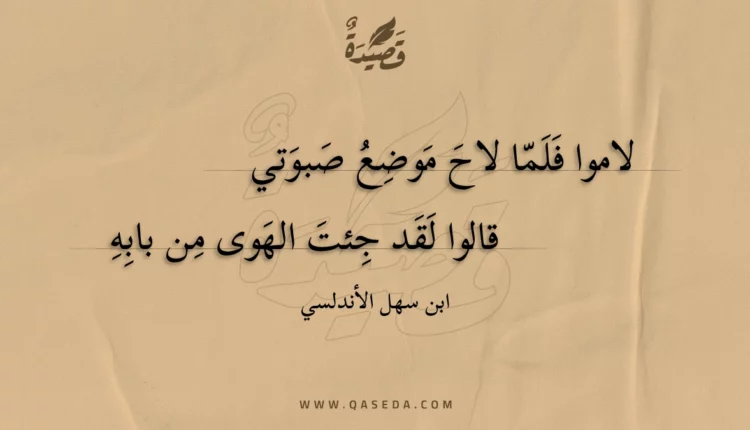 قَصِيدَةٌ
لاموا فَلَمّا لاحَ مَوضِعُ صَبوَتي
قالوا لَقَد جِئتَ الهَوى مِن بابِهِ
ابن سهل الأندلسي
WWW.QASEDA.COM